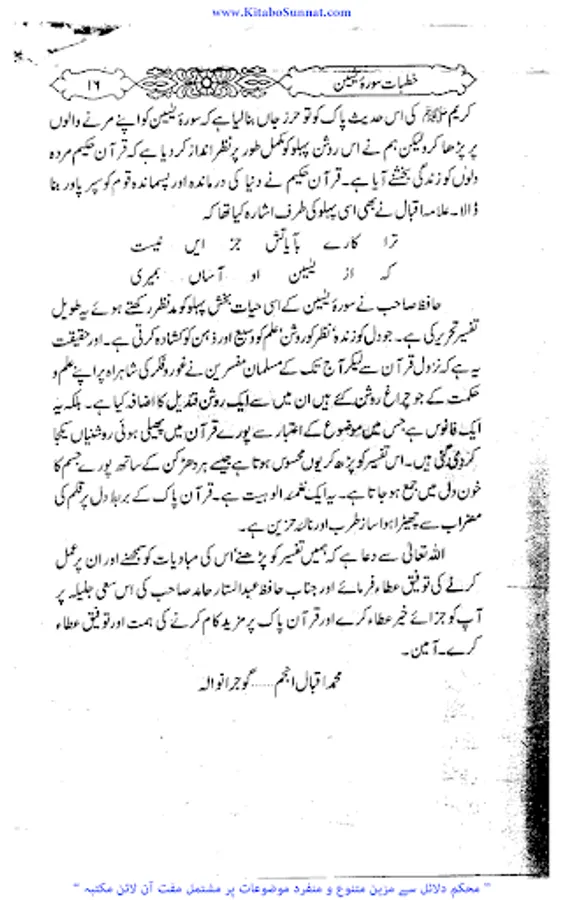 www.KitaboSunnat.com
خطبات سورۂ یٰسین
۱۶
کریم ﷺ کی اس حدیث پاک کو تو حرز جاں بنا لیا ہے کہ سورۂ یٰسین کو اپنے مرنے والوں
پر پڑھا کرو لیکن ہم نے اس روشن پہلو کو مکمل طور پر نظر انداز کر دیا ہے کہ قرآن حکیم مردہ
دلوں کو زندگی بخشنے آیا ہے۔ قرآن حکیم نے دنیا کی درماندہ اور پسماندہ قوم کو سپر پاور بنا
ڈالا۔ علامہ اقبال نے بھی اسی پہلو کی طرف اشارہ کیا تھا کہ
ترا کارے بآیاتش جز ایں نیست
کہ از یٰسین او آساں بمیری
حافظ صاحب نے سورۂ یٰسین کے اسی حیات بخش پہلو کو مدنظر رکھتے ہوئے یہ طویل
تفسیر تحریر کی ہے۔ جو دل کو زندہ نظر کو روشن علم کو وسیع اور ذہن کو کشادہ کرتی ہے۔ اور حقیقت
یہ ہے کہ نزول قرآن سے لیکر آج تک کے مسلمان مفسرین نے غور و فکر کی شاہراہ پر اپنے علم و
حکمت کے جو چراغ روشن کئے ہیں ان میں سے ایک روشن قندیل کا اضافہ کیا ہے۔ بلکہ یہ
ایک فانوس ہے جس میں موضوع کے اعتبار سے پورے قرآن میں پھیلی ہوئی روشنیاں یکجا
کر دی گئی ہیں۔ اس تفسیر کو پڑھ کر یوں محسوس ہوتا ہے جیسے ہر دھڑکن کے ساتھ پورے جسم کا
خون دل میں جمع ہو جاتا ہے۔ یہ ایک نغمۂ الوہیت ہے۔ قرآن پاک کے بربط دل پر قلم کی
مضراب سے چھیڑا ہوا ساز طرب اور نالۂ حزین ہے۔
اللہ تعالیٰ سے دعا ہے کہ ہمیں تفسیر کو پڑھنے اس کی مبادیات کو سمجھنے اور ان پر عمل
کرنے کی توفیق عطاء فرمائے اور جناب حافظ عبدالستار حامد صاحب کی اس سعی جلیلہ پر
آپ کو جزائے خیر عطاء کرے اور قرآن پاک پر مزید کام کرنے کی ہمت اور توفیق عطاء
کرے۔ آمین۔
محمد اقبال انجم......گوجرانوالہ
" محکم دلائل سے مزین متنوع و منفرد موضوعات پر مشتمل مفت آن لائن مکتبہ "